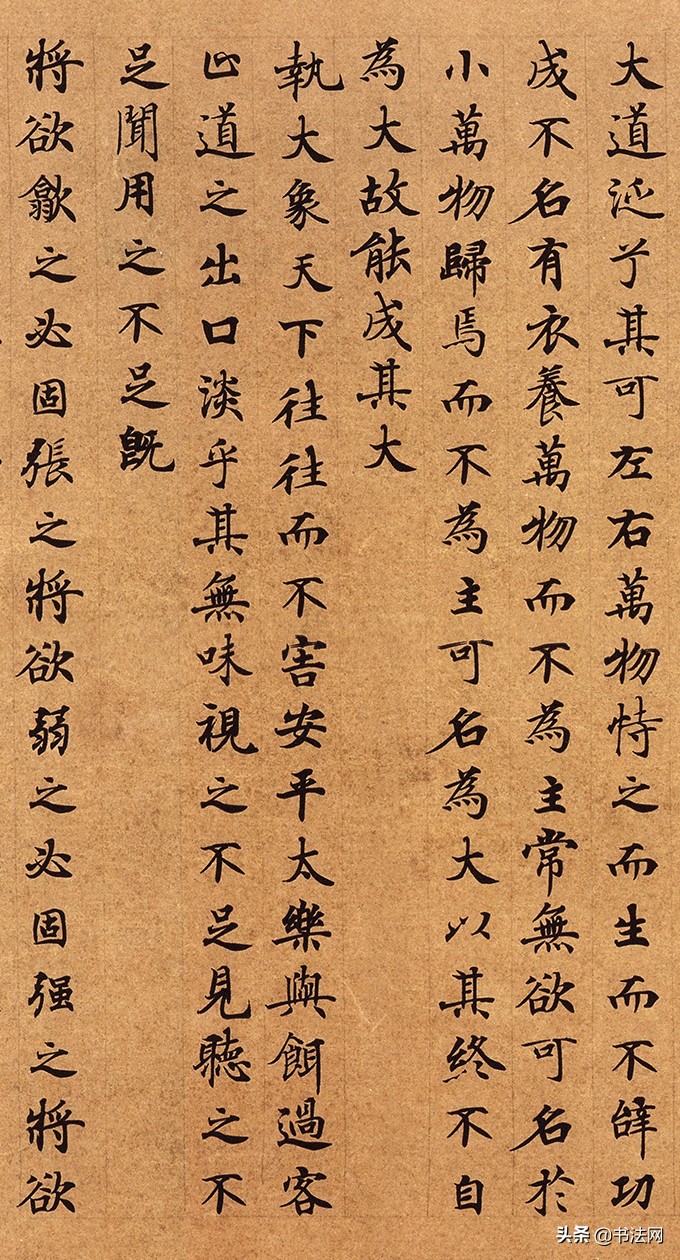 大道泛兮其可左右萬物恃之而生而不辭功
成不名有衣養萬物而不為主常無欲可名於
小萬物歸焉而不為主可名為大以其終不自
為大故能成其大
執大象天下往往而不害安平太樂與餌過客
止道之出口淡乎其無味視之不足見聽之不
足聞用之不足旣
將欲歙之必固張之將欲弱之必固强之將欲
头条 @书法网